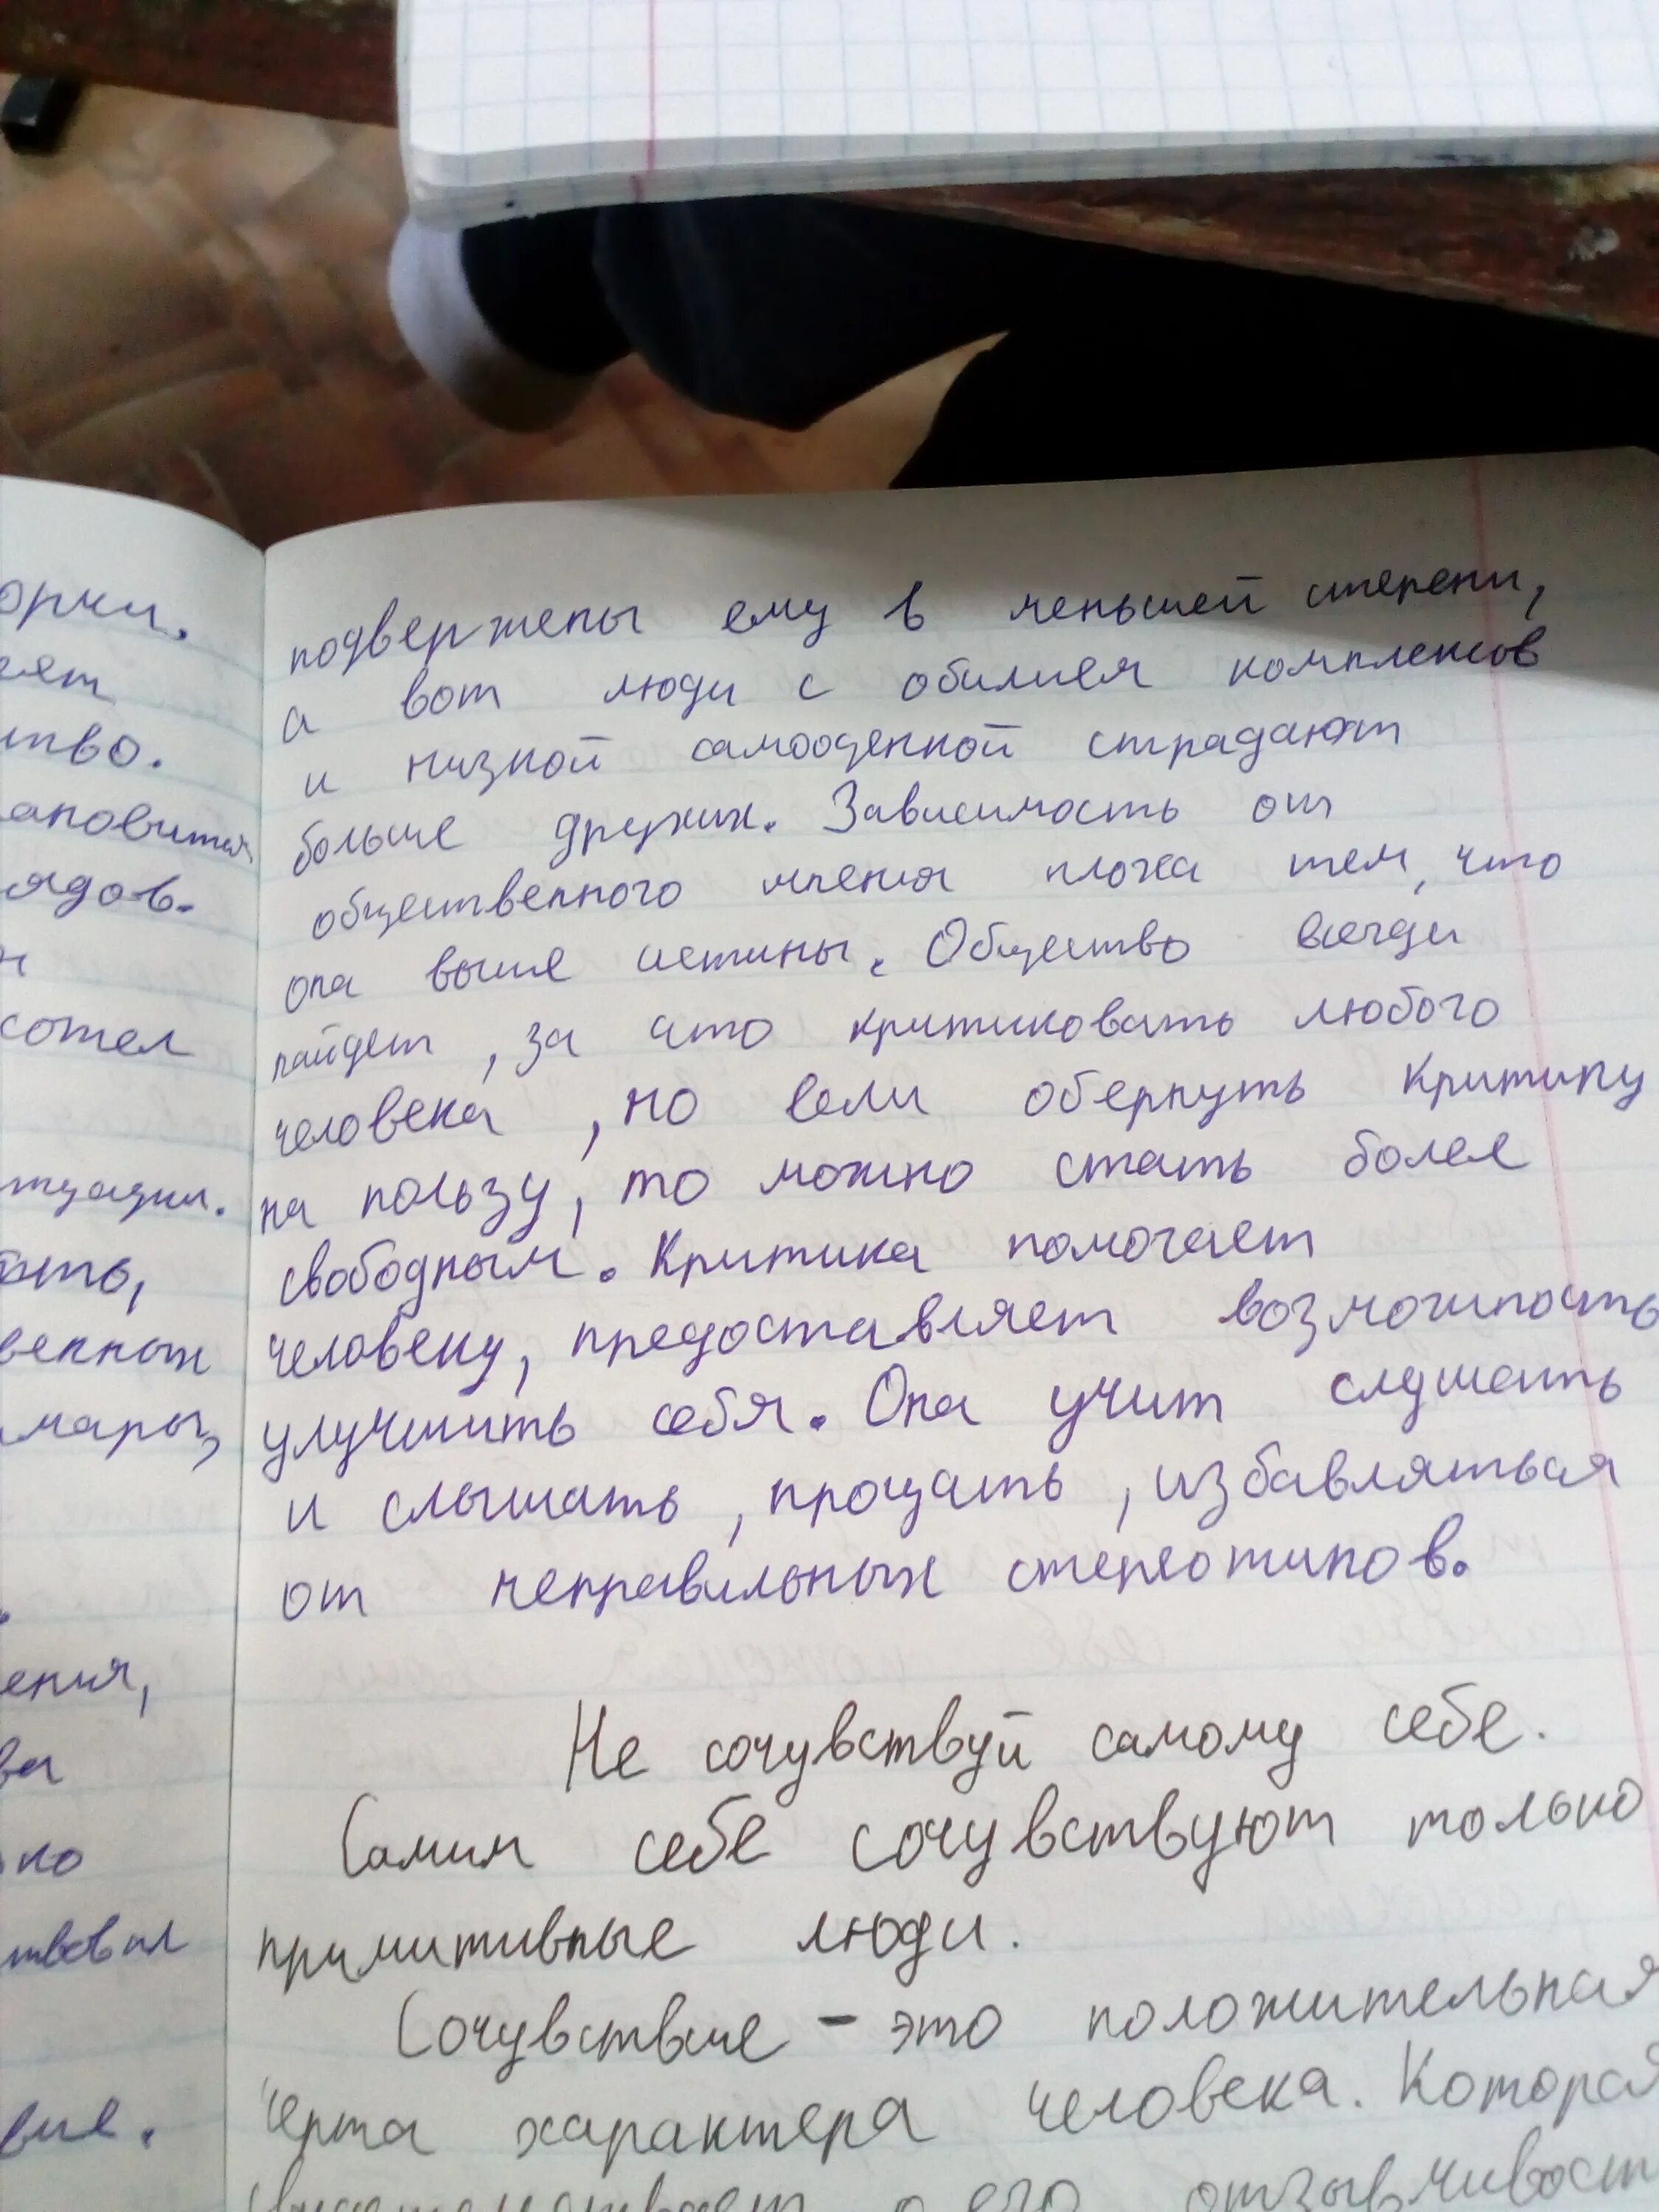 орки.
ят
тво.
ановится
ядов.
н
хотел
туации.
ать,
венных
мары,
ения,
ва
но
твовал
вие.
подвержены ему в меньшей степени,
а вот люди с обилием комплексов
и низкой самооценкой страдают
больше других. Зависимость от
общественного мнения плоха тем, что
она выше истины. Общество всегда
найдет, за что критиковать любого
человека, но если обернуть критику
на пользу, то можно стать более
свободным. Критика помогает
человеку, предоставляет возможность
улучшить себя. Она учит слушать
и слышать, прощать, избавляться
от неправильных стереотипов.
Не сочувствуй самому себе.
Самим себе сочувствуют только
примитивные люди.
Сочувствие - это положительная
черта характера человека. Которая
свидетельствует о его отзывчивост